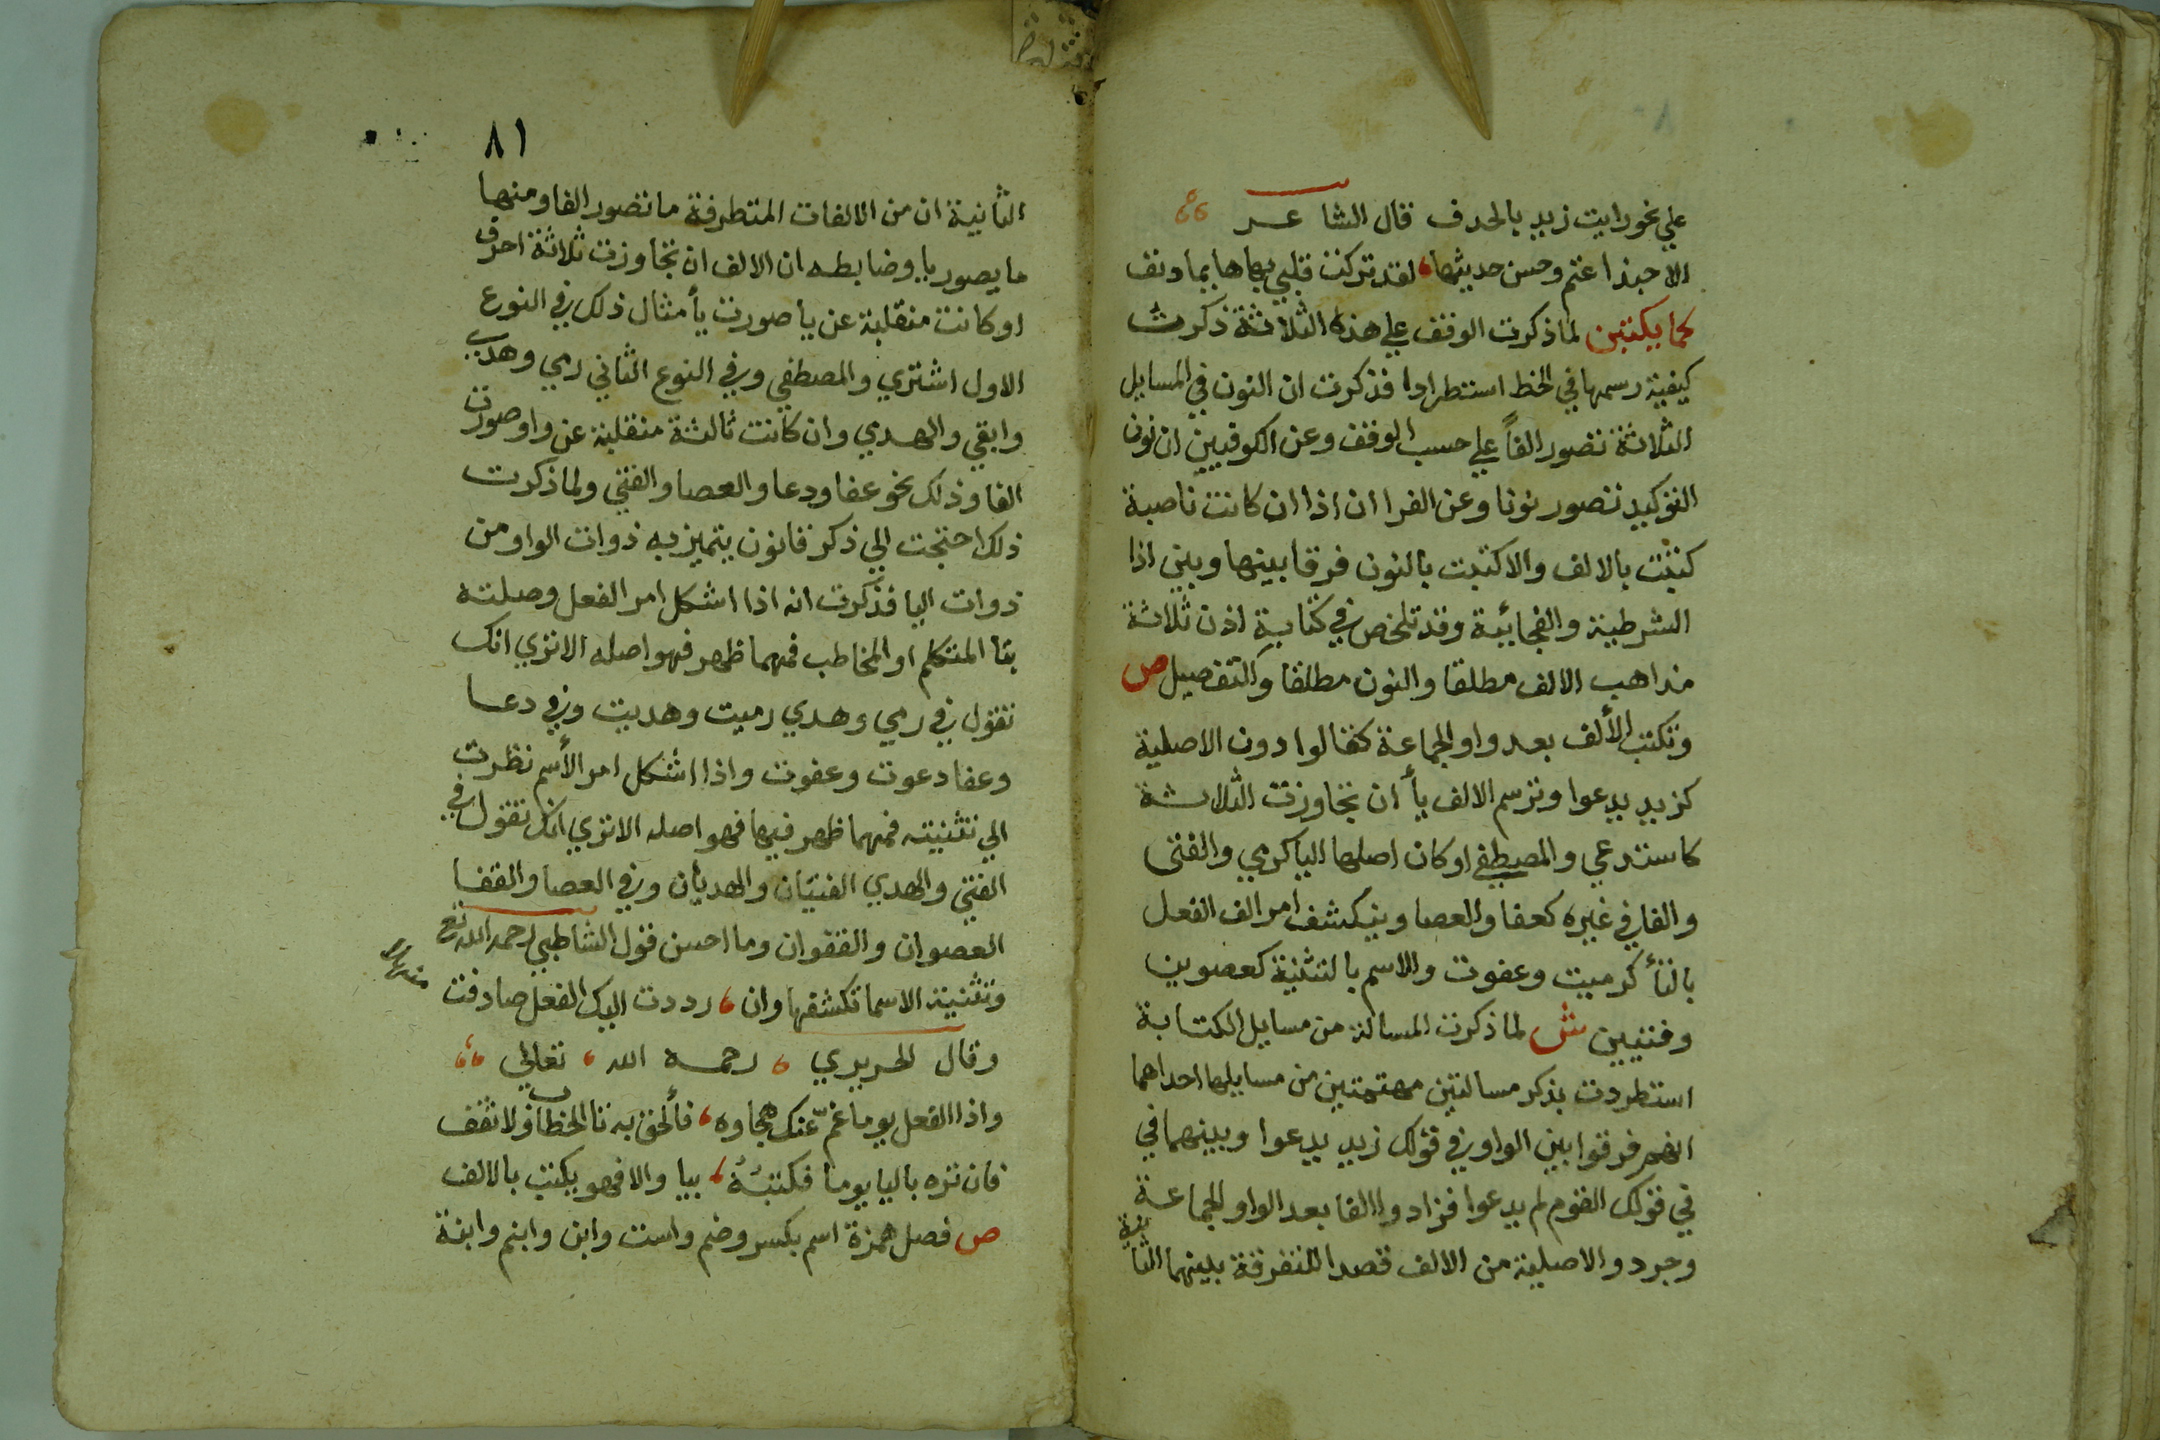 علي نحو رايت زيد بالحدف قال الشاعر
الا حبذا غنم وحسن حديثها لقد تركت قلبي بها هايما دنف
كما يكتبن لما ذكرت الوقف علي هذه الثلاثة ذكرت
كيفية رسمها في الخط استطرادا فذكرت ان النون في المسايل
الثلاثة تصور الفاً علي حسب الوقف وعن الكوفيين ان نون
التوكيد تصور نونا وعن الفرا ان اذا ان كانت ناصبة
كتبت بالالف والا كتبت بالنون فرقا بينها وبين اذا
الشرطية والفجائية وقد تلخص في كتابة اذن ثلاثة
مذاهب الالف مطلقا والنون مطلقا والتفصيل ص
وتكتب الألف بعد واو الجماعة كقالوا دون الاصلية
كزيد يدعوا وترسم الالف يأ ان تجاوزت الثلاثة
كاستدعي والمصطفي او كان اصلها اليا كرمي والفتى
والفا في غيره كعفا والعصا وينكشف امر الف الفعل
بالتأ كرميت وعفوت والاسم بالتثنية كعصوين
وفتيين ش لما ذكرت المسالة من مسايل الكتابة
استطردت بذكر مسالتين مهمتين من مسايلها احداهما
انهم فرقوا بين الواو في قولك زيد يدعوا وبينهما في
في قولك القوم لم يدعوا فزادوا الفا بعد الواو الجماعة
وجردوا الاصلية من الالف قصدا للتفرقة بينهما الثانية
٨١
الثانية ان من الالفات المتطرفة ما تصور الفا ومنها
ما يصور يا وضابطه ان الالف ان تجاوزت ثلاثة احرف
او كانت منقلبة عن يا صورت يأ مثال ذلك في النوع
الاول اشتري والمصطفي وفي النوع الثاني رمي وهدي
وابقي والهدي وان كانت ثالثة منقلبة عن واو صورت
الفا وذلك نحو عفا ودعا والعصا والفتي ولما ذكرت
ذلك احتجت الي ذكر قانون يتميز به ذوات الواو من
ذوات اليا فذكرت انه اذا اشكل امر الفعل وصلته
بتا المتكلم او المخاطب فمهما ظهر فهو اصله الا تري انك
تقول في رمي وهدي رميت وهديت وفي دعا
وعفا دعوت وعفوت واذا اشكل امر الأسم نظرت
الي تثنيته فمهما ظهر فيها فهو اصله الا تري انك تقول في
الفتي والهدي الفتيان والهديان وفي العصا والقفا
العصوان والقفوان وما احسن قول الشاطبي رحمه الله تع
وتثنية الاسما تكشفها وان رددت اليك الفعل صادفت
منهلا
وقال الحريري رحمه الله تعالي
واذا الفعل يوما غمّ عنك هجاوه فألحق به تا الخطاب ولا تقف
فان تره باليا يوما فكتبُهُ بيا والا فهو يكتب بالالف
ص فصل همزة اسم بكسر وضم واست وابن وابنم وابنة